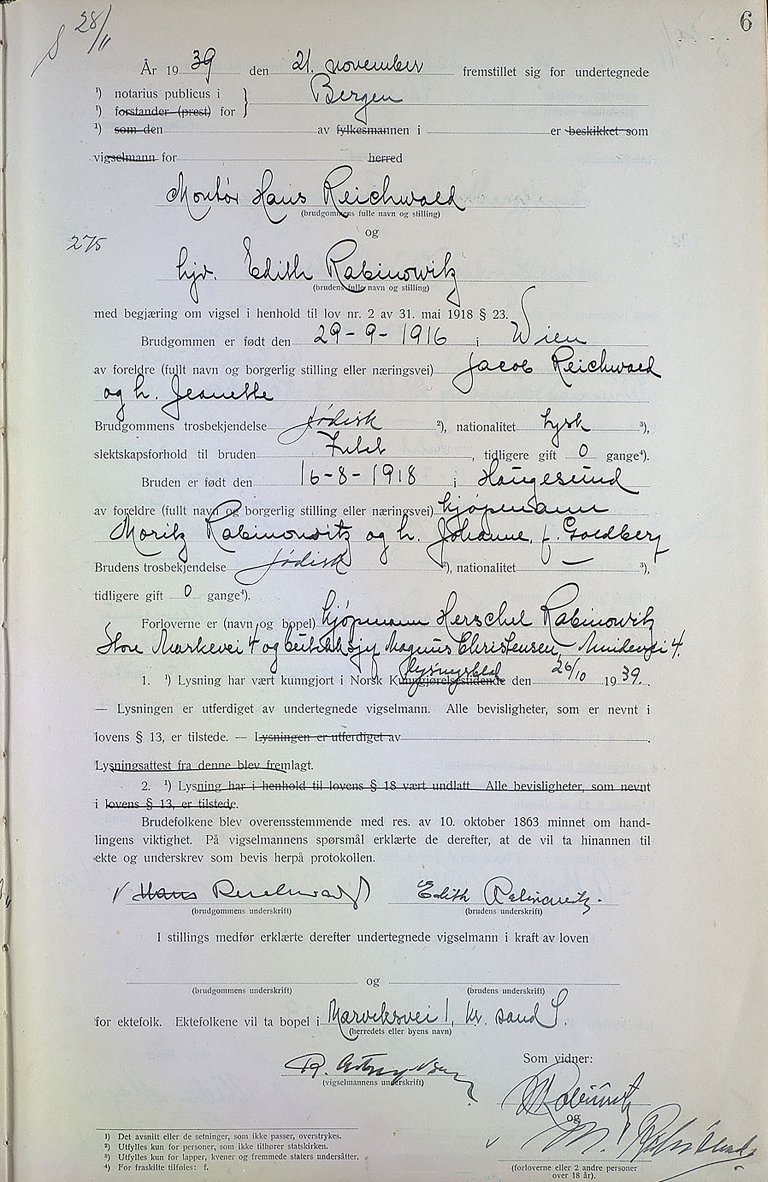 28/11
6
År 1939 den 21. november fremstillet sig for undertegnede
¹) notarius publicus i } Bergen
¹) forstander (prest) for
¹) som den av fylkesmannen i er beskikket som
vigselmann for herred
Montør Hans Reichwald
(brudgommens fulle navn og stilling)
og
275
hjv. Edith Rabinowitz
(brudens fulle navn og stilling)
med begjæring om vigsel i henhold til lov nr. 2 av 31. mai 1918 § 23.
Brudgommen er født den 29-9-1916 i Wien
av foreldre (fullt navn og borgerlig stilling eller næringsvei) Jacob Reichwald
og h. Jeanette
Brudgommens trosbekjendelse jødisk ²), nationalitet tysk ³),
slektskapsforhold til bruden , tidligere gift 0 gange⁴).
Bruden er født den 16-8-1918 i Haugesund
av foreldre (fullt navn og borgerlig stilling eller næringsvei) kjøpmann
Moritz Rabinowitz og h. Johanne f. Goldberg
Brudens trosbekjendelse jødisk ²), nationalitet — ³),
tidligere gift 0 gange⁴).
Forloverne er (navn og bopel) kjøpmann Herschel Rabinowitz
Store Markevei 4 og butikksjef Magnus Christensen, 4.
lysningsblad
1. ¹) Lysning har vært kunngjort i Norsk Kunngjørelsestidende den 26/10 1939.
— Lysningen er utferdiget av undertegnede vigselmann. Alle bevisligheter, som er nevnt i
lovens § 13, er tilstede. — Lysningen er utferdiget av .
Lysningsattest fra denne blev fremlagt.
2. ¹) Lysning har i henhold til lovens § 18 vært undlatt Alle bevisligheter, som nevnt
i lovens § 13, er tilstede.
Brudefolkene blev overensstemmende med res. av 10. oktober 1863 minnet om hand-
lingens viktighet. På vigselmannens spørsmål erklærte de derefter, at de vil ta hinannen til
ekte og underskrev som bevis herpå protokollen.
Hans Reichwald Edith Rabinowitz.
(brudgommens underskrift) (brudens underskrift)
I stillings medfør erklærte derefter undertegnede vigselmann i kraft av loven
og
(brudgommens underskrift) (brudens underskrift)
for ektefolk. Ektefolkene vil ta bopel i Marviksvei 1, Kr. sand S.
(herredets eller byens navn)
R.
(vigselmannens underskrift)
Som vidner:
Rabinowitz
og
M.
(forloverne eller 2 andre personer
over 18 år).
¹) Det avsnitt eller de setninger, som ikke passer, overstrykes.
²) Utfylles kun for personer, som ikke tilhører statskirken.
³) Utfylles kun for lapper, kvener og fremmede staters undersåtter.
⁴) For fraskilte tilføies: f.